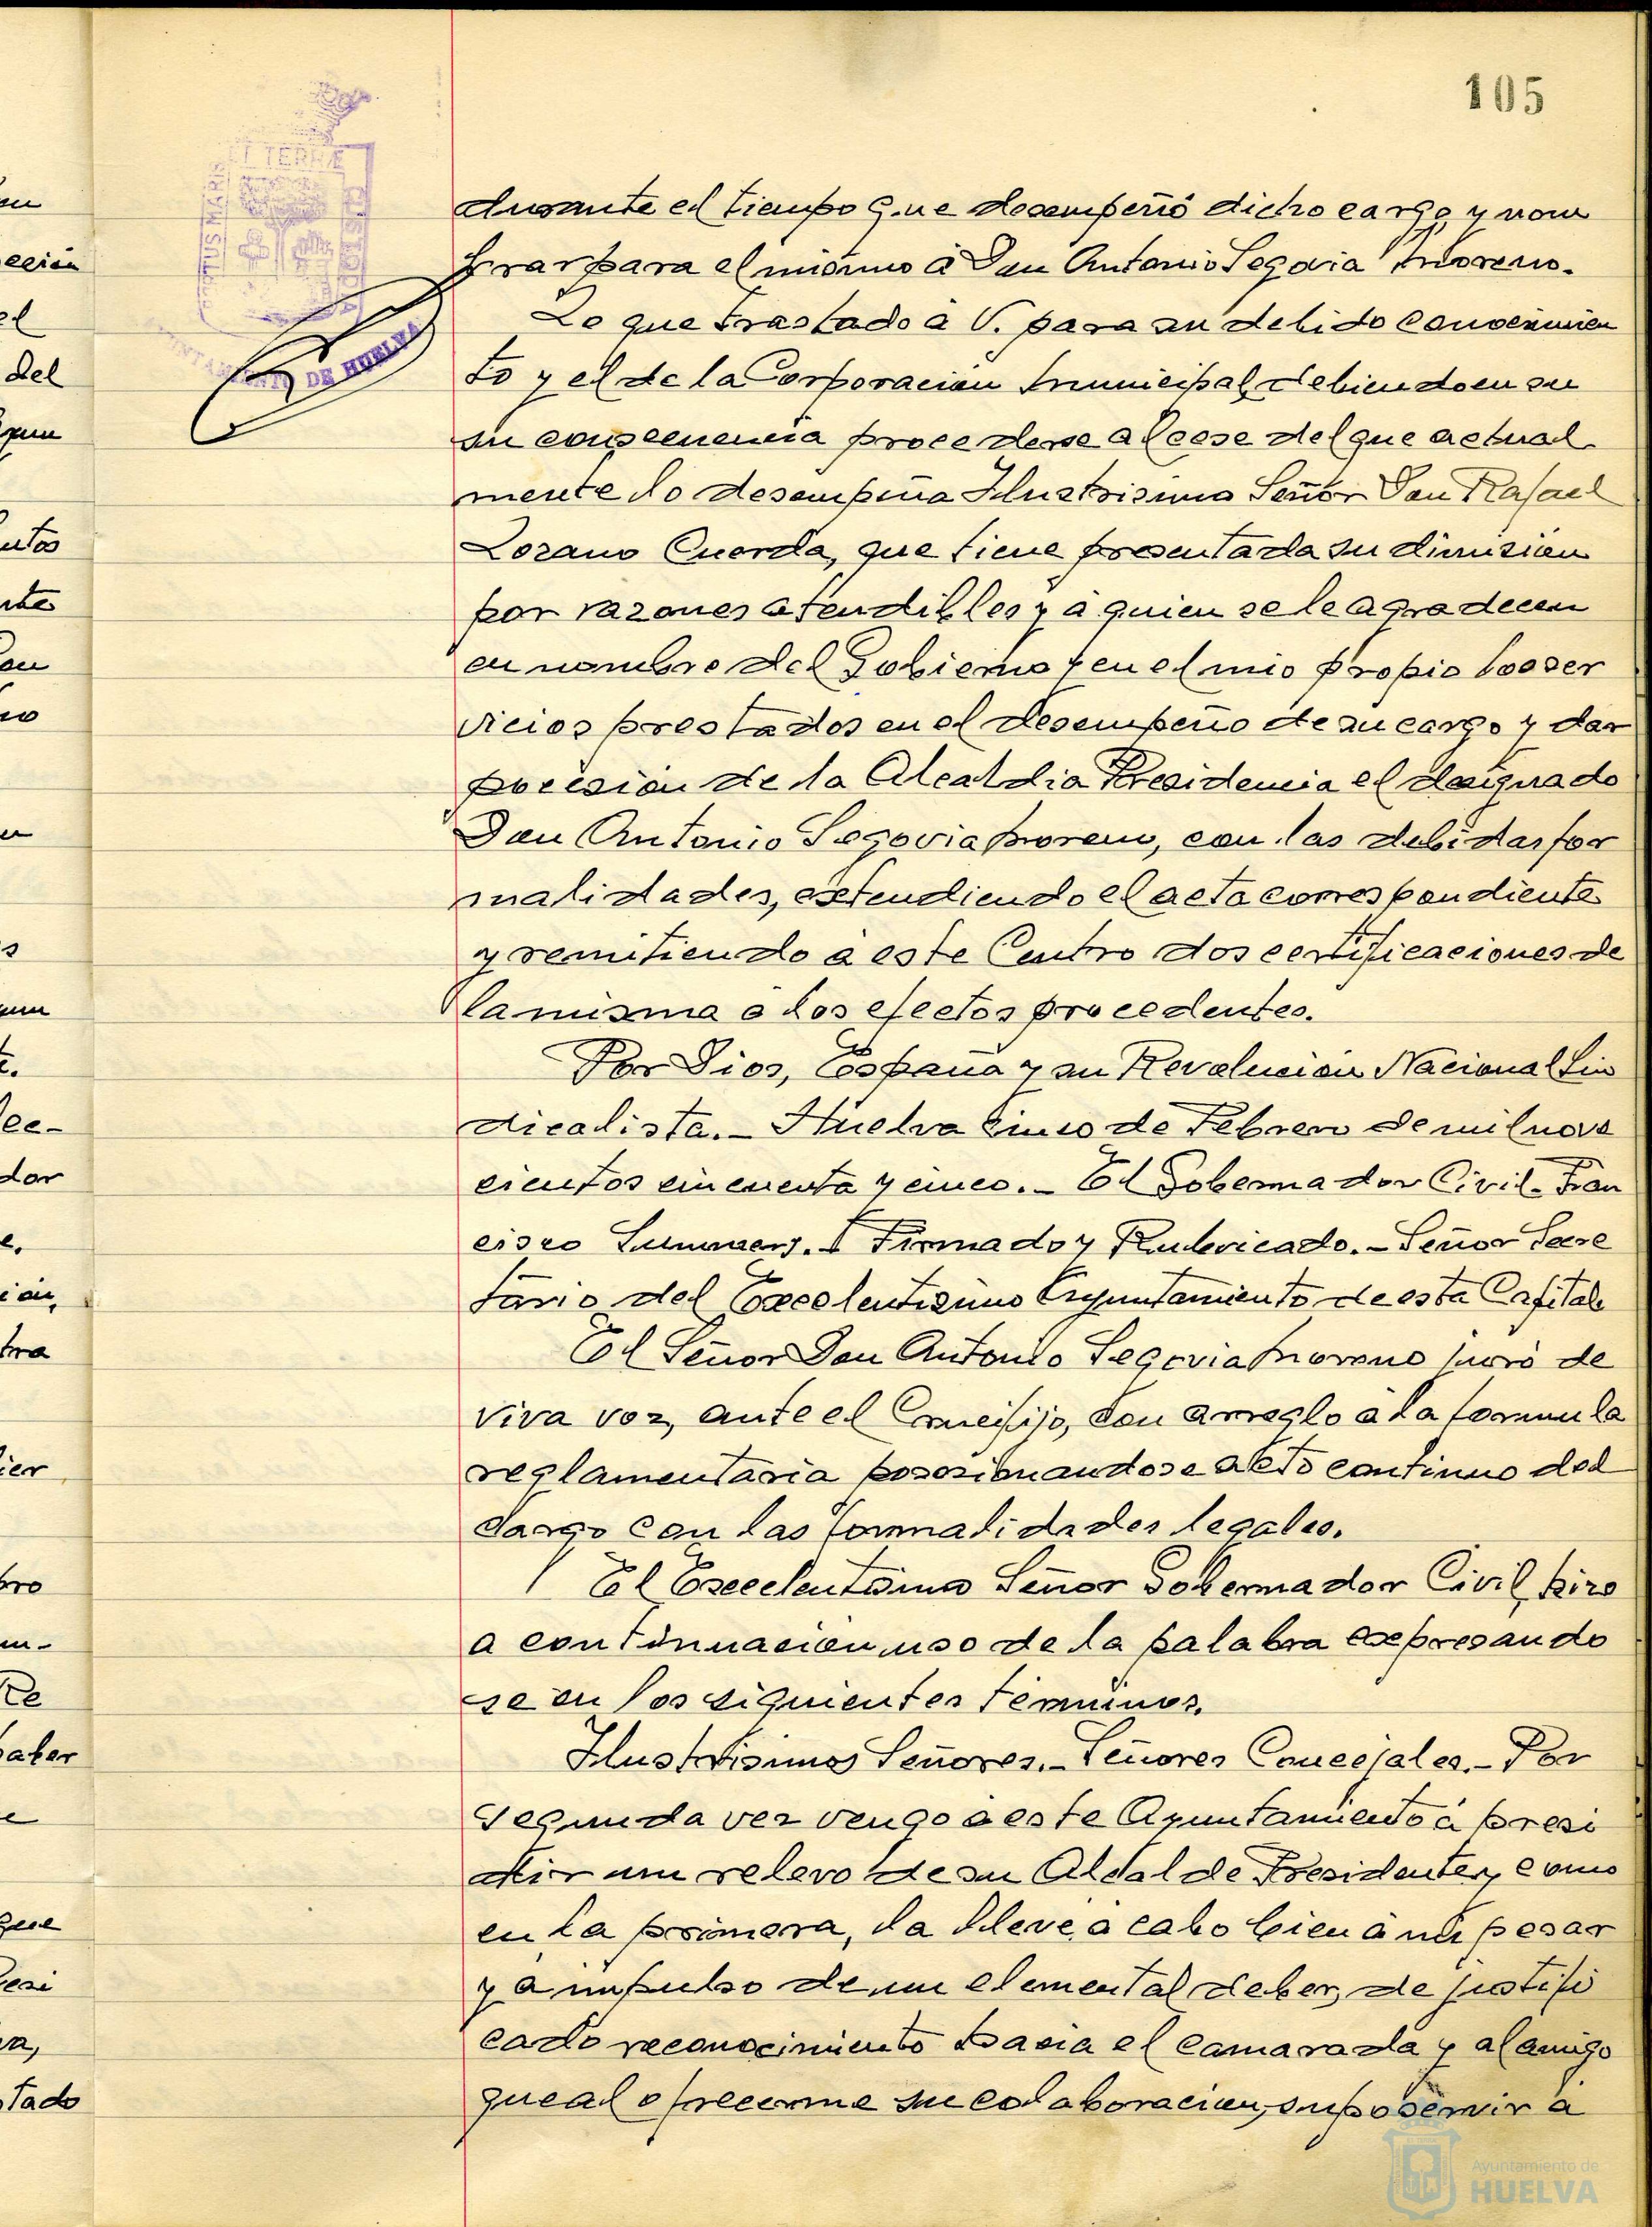 105
durante el tiempo que desempeñó dicho cargo, y nom
brar para el mismo á Don Antonio Segovia Moreno.-
Lo que traslado a V. para su debido conocimien
to y el de la Corporacion Municipal, debiendo en su
su consecuencia procederse al cese del que actual
mente lo desempeña Ilustrisimo Señor Don Rafael
Lozano Cuerda, que tiene presentada su dimision
por razones atendibles y a quien se le agradecen
en nombre del Gobierno y en el mio propio los ser
vicios prestados en el desempeño de su cargo y dar
posesion de la Alcaldia Presidencia el designado
Don Antonio Segovia Moreno, con las debidas for
malidades, extendiendo el acta correspondiente
y remitiendo a este Centro dos certificaciones de
la misma a los efectos procedentes.
Por Dios, España y su Revolucion Nacional Sin
dicalista.- Huelva cinco de Febrero de mil nove
cientos cincuenta y cinco.- El Gobernador Civil- Fran
cisco Summers. Firmado y Rubricado.- Señor Secre
tario del Excelentisimo Ayuntamiento de esta Capital
El Señor Don Antonio Segovia Moreno juró de
viva voz, ante el Crucifijo, con arreglo a la formula
reglamentaria posesionandose acto continuo del
cargo con las formalidades legales.
El Excelentisimo Señor Gobernador Civil, hizo
a continuacion uso de la palabra expresando
se en los siguientes terminos.
Ilustrisimos Señores.- Señores Concejales.- Por
segunda vez vengo a este Ayuntamiento á presi
dir un relevo de su Alcalde Presidente y, como
en la primera, la lleve a cabo bien a mi pesar
y a impulso de un elemental deber, de justifi
cado reconocimiento hacia el camarada y al amigo
que al ofrecerme su colaboracion, supo servir a
AYUNTAMIENTO DE HUELVA
PORTUS MARIS ET TERRÆ CUSTODIA
eccion
el
del
utos
s
dor
tra
ier
saber
que
tado
Ayuntamiento de
HUELVA